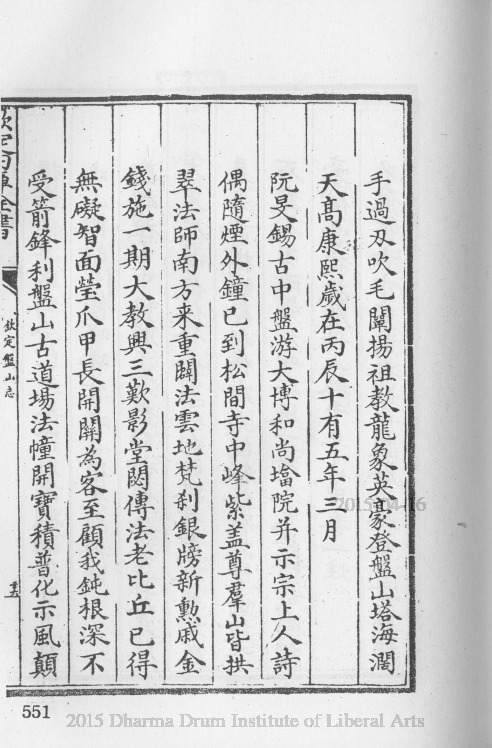 手過刃吹毛闡揚祖教龍象英豪登盤山塔海濶
天髙康熙歲在丙辰十有五年三月
阮旻錫古中盤游大博和尚墖院并示宗上人詩
偶隨煙外鐘已到松間寺中峰紫盖尊羣山皆拱
翠法師南方来重闢法雲地梵刹銀牓新勲戚金
錢施一期大教興三歎影堂閟傳法老比丘已得
無礙智面瑩爪甲長開關為客至顧我鈍根深不
受箭鋒利盤山古道場法幢開寶積普化示風顛
欽定四庫全書
欽定盤山志
551
2015 Dharma Drum Institute of Liberal Arts